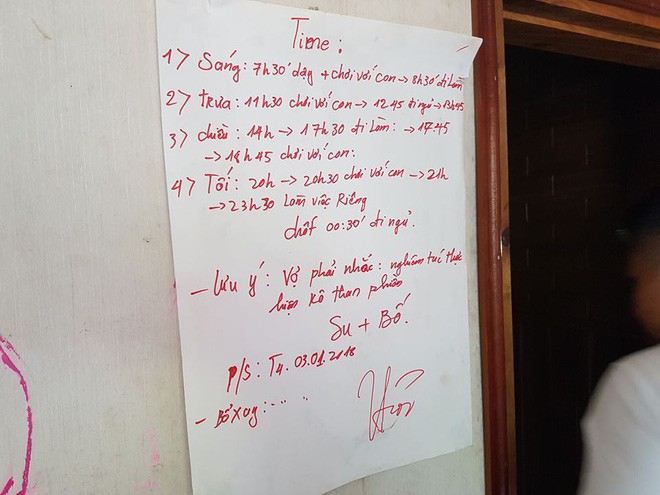 Time:
1> Sáng: 7h30' dậy + chơi với con → 8h30' đi làm
2> trưa: 11h30 chơi với con → 12 45 đi ngủ → 13h45
3> chiều: 14h → 17h30 đi làm: → 17.45
→ 18h45 chơi với con:
4> Tối: 20h → 20h30 chơi với con → 21h
→ 23h30 Làm việc Riêng
chốt 00:30' đi ngủ.
- Lưu ý: Vợ phải nhắc: nghiêm túc thực
hiện kô than phiền
Su + Bố.
P/s: T4. 03.01.2018
- Bổ xung:.....